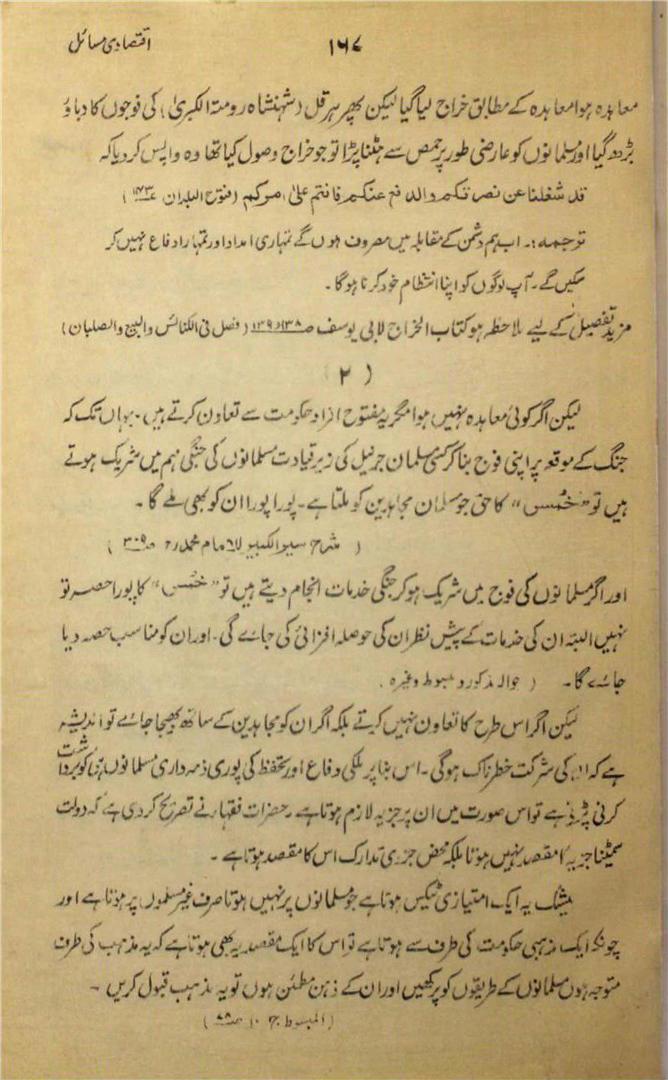 اقتصادی مسائل ۱۶۷
معاہدہ ہوا معاہدہ کے مطابق خراج لیا گیا لیکن پھر ہرقل (شہنشاہ رومۃ الکبریٰ) کی فوجوں کا دباؤ
بڑھ گیا اور مسلمانوں کو عارضی طور پر حمص سے ہٹنا پڑا تو جو خراج وصول کیا تھا وہ واپس کر دیا کہ
قد شغلنا عن نصرتکم والدفع عنکم فانتم علیٰ امرکم (فتوح البلدان ۱۴۳)
ترجمہ :۔ اب ہم دشمن کے مقابلہ میں مصروف ہوں گے تمہاری امداد اور تمہارا دفاع نہیں کر
سکیں گے۔ آپ لوگوں کو اپنا انتظام خود کرنا ہوگا۔
مزید تفصیل کے لیے ملاحظہ ہو کتاب الخراج لابی یوسف ص ۱۳۸ و ۱۳۹ (فصل فی الکنائس والبیع والصلبان)
(۲)
لیکن اگر کوئی معاہدہ نہیں ہوا مگر یہ مفتوح افراد حکومت سے تعاون کرتے ہیں۔ یہاں تک کہ
جنگ کے موقعہ پر اپنی فوج بنا کر کسی مسلمان جرنیل کی زیر قیادت مسلمانوں کی جنگی مہم میں شریک ہوتے
ہیں تو "خُمُس" کا حق جو مسلمان مجاہدین کو ملتا ہے۔ پورا پورا ان کو بھی ملے گا۔
(شرح سیر الکبیر للامام محمد رح ص ۳۰۹)
اور اگر مسلمانوں کی فوج میں شریک ہو کر جنگی خدمات انجام دیتے ہیں تو "خمس" کا پورا حصہ تو
نہیں البتہ ان کی خدمات کے پیش نظر ان کی حوصلہ افزائی کی جائے گی۔ اور ان کو مناسب حصہ دیا
جائے گا۔ (حوالہ مذکور و مبسوط وغیرہ)
لیکن اگر اس طرح کا تعاون نہیں کرتے بلکہ اگر ان کو مجاہدین کے ساتھ بھیجا جائے تو اندیشہ
ہے کہ ان کی شرکت خطرناک ہوگی۔ اس بنا پر ملکی دفاع اور تحفظ کی پوری ذمہ داری مسلمانوں ہی کو برداشت
کرنی پڑتی ہے تو اس صورت میں ان پر جزیہ لازم ہوتا ہے۔ حضرات فقہاء نے تصریح کر دی ہے کہ دولت
سمیٹنا جزیہ کا مقصد نہیں ہوتا بلکہ محض جزی تدارک اس کا مقصد ہوتا ہے۔
بیشک یہ ایک امتیازی ٹیکس ہوتا ہے جو مسلمانوں پر نہیں ہوتا صرف غیر مسلموں پر ہوتا ہے اور
چونکہ ایک مذہبی حکومت کی طرف سے ہوتا ہے تو اس کا ایک مقصد یہ بھی ہوتا ہے کہ یہ مذہب کی طرف
متوجہ ہوں مسلمانوں کے طریقوں کو پرکھیں اور ان کے ذہن مطمئن ہوں تو یہ مذہب قبول کریں۔
(المبسوط ج ۱۰ ص ۷۸)